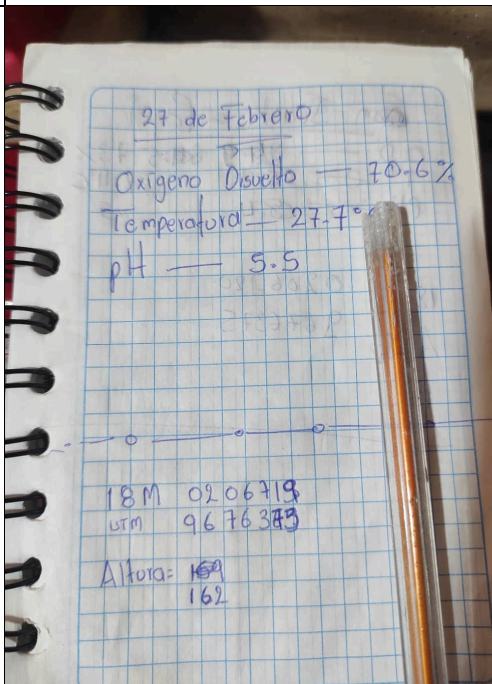 27 de Febrero
Oxigeno Disuelto — 70.6%
Temperatura — 27.7°
pH — 5.5
18M 0206719
UTM
Altura=
162